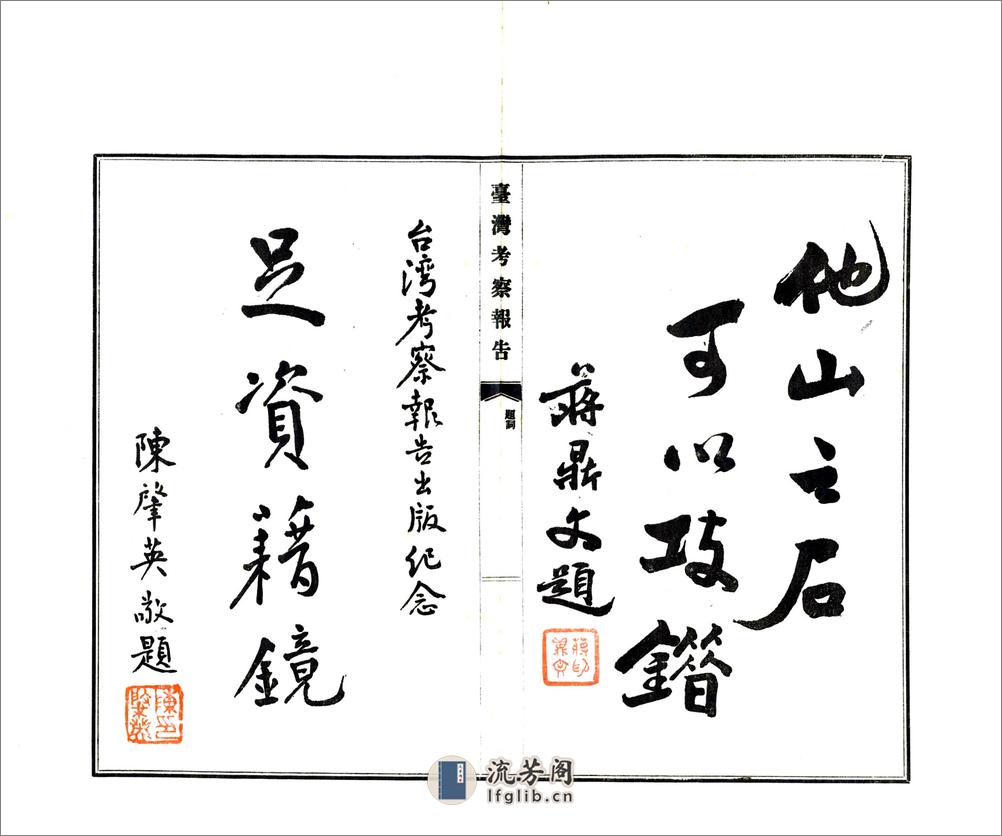 他山之石
可以攻錯
蔣鼎文題
蔣印
鼎文
臺灣考察報告
題詞
台湾考察報告出版紀念
足資藉鏡
陳肇英敬題
陳印
肇英
流芳阁
lfglib.cn